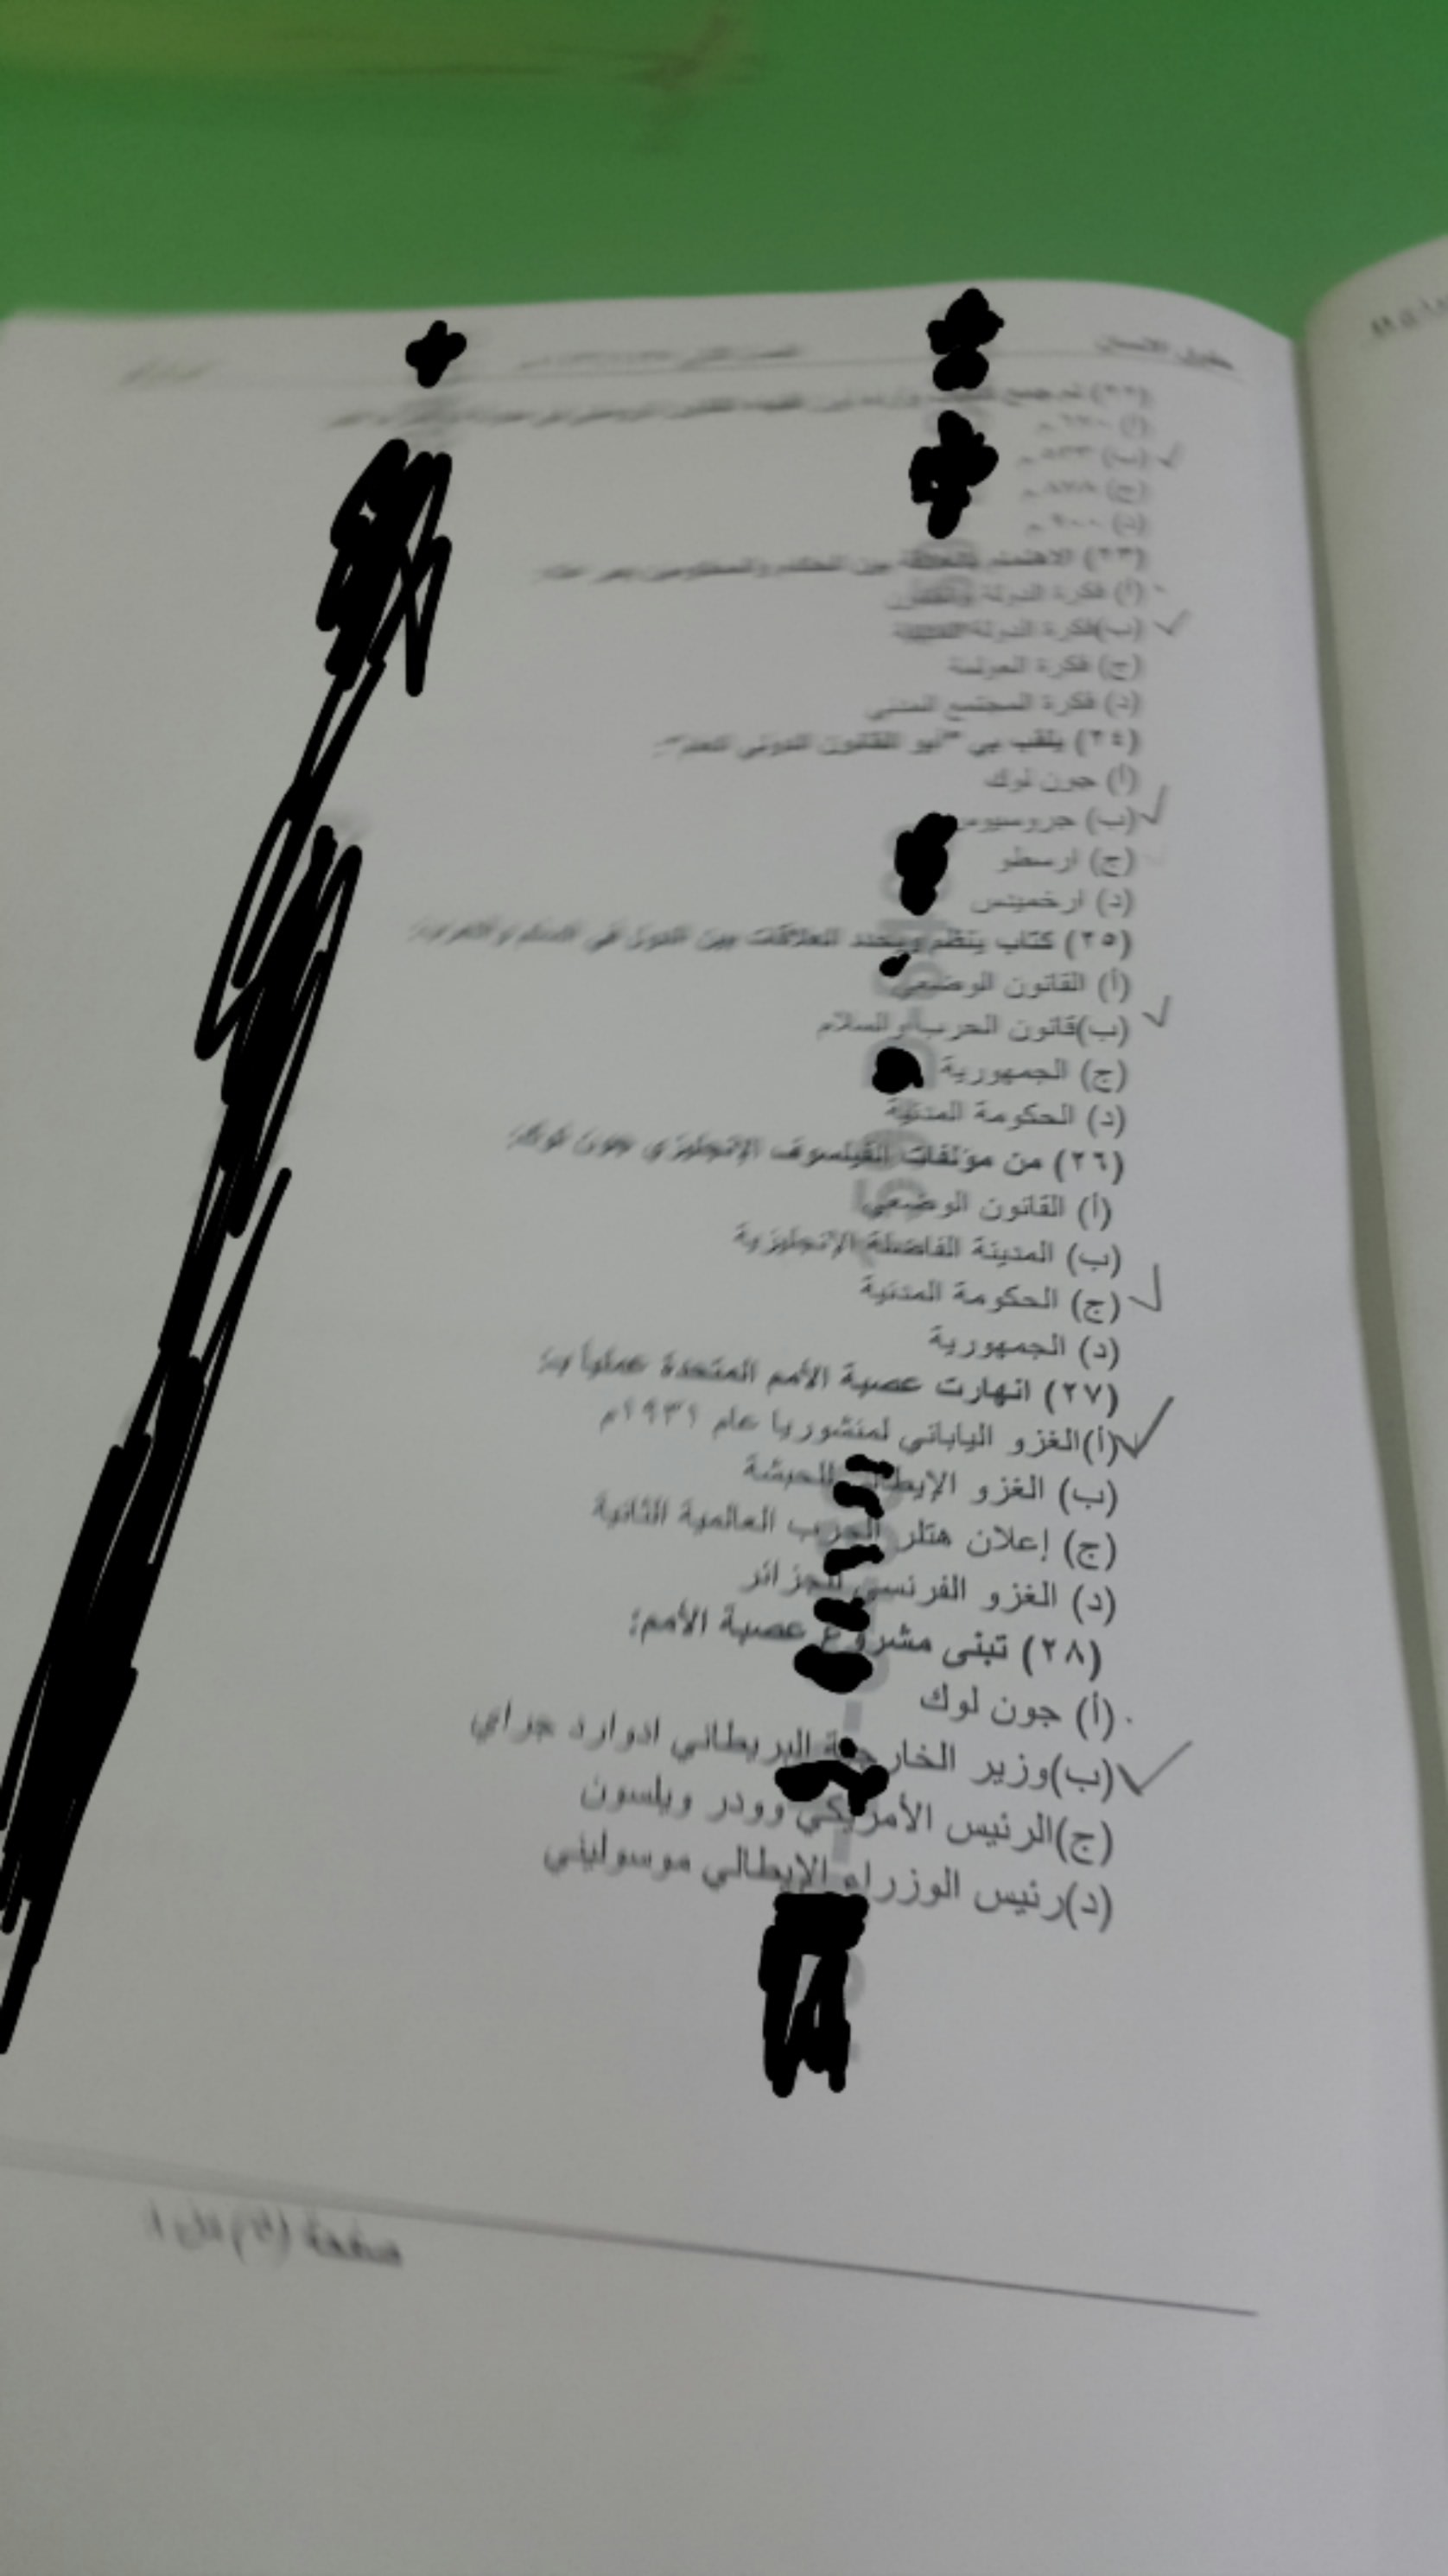 حقوق الإنسان
(٢٢) تم جمع
(أ)
(ب) ٥٣٣ م
(ج)
(د) ٩٠٠ م
(٢٣) الاهتمام بالعلاقة بين الحكام والمحكومين يعبر عنه
(أ) فكرة الدولة والقانون
(ب) فكرة الدولة
(ج) فكرة العولمة
(د) فكرة المجتمع المدني
(٢٤) يلقب بي "أبو القانون الدولي العام":
(أ) جون لوك
(ب) جروسيوس
(ج) ارسطو
(د) ارخميتس
(٢٥) كتاب ينظم ويحدد العلاقات بين الدول في السلم والحرب:
(أ) القانون الوضعي
(ب)قانون الحرب والسلام
(ج) الجمهورية
(د) الحكومة المدنية
(٢٦) من مؤلفات الفيلسوف الإنجليزي جون لوك:
(أ) القانون الوضعي
(ب) المدينة الفاضلة الإنجليزية
(ج) الحكومة المدنية
(د) الجمهورية
(٢٧) انهارت عصبة الأمم المتحدة عملياً ب:
(أ)الغزو الياباني لمنشوريا عام ١٩٣١م
(ب) الغزو الإيطالي للحبشة
(ج) إعلان هتلر الحرب العالمية الثانية
(د) الغزو الفرنسي للجزائر
(٢٨) تبنى مشروع عصبة الأمم:
(أ) جون لوك
(ب)وزير الخارجية البريطاني ادوارد جراي
(ج)الرئيس الأمريكي وودر ويلسون
(د)رئيس الوزراء الإيطالي موسوليني
صفحة